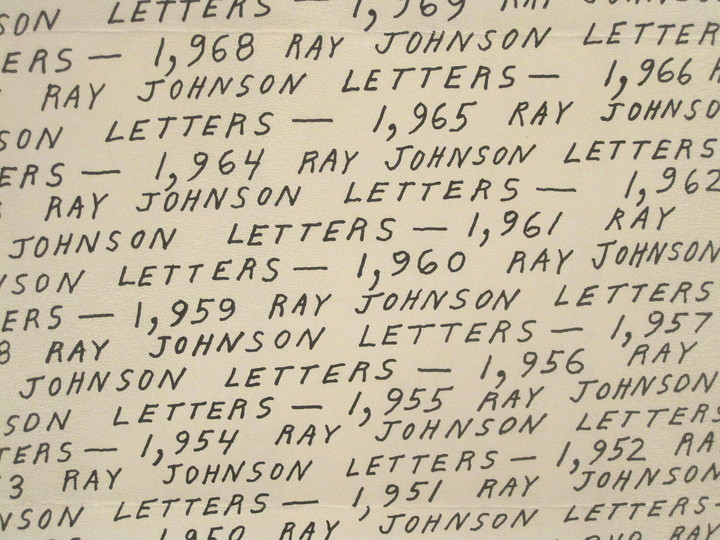 SON LETTERS — 1,969 RAY
ERS — 1,968 RAY JOHNSON LETTER
RAY JOHNSON LETTERS — 1,966
SON LETTERS — 1,965 RAY JOHNSO
ERS — 1,964 RAY JOHNSON LETTERS
RAY JOHNSON LETTERS — 1,962
JOHNSON LETTERS — 1,961 RAY
SON LETTERS — 1,960 RAY JOHNSON
ERS — 1,959 RAY JOHNSON LETTERS
8 RAY JOHNSON LETTERS — 1,957
JOHNSON LETTERS — 1,956 RAY
SON LETTERS — 1,955 RAY JOHNSON
TERS — 1,954 RAY JOHNSON LETTERS
3 RAY JOHNSON LETTERS — 1,952 RA
NSON LETTERS — 1,951 RAY JOHNSON
1,950 RAY JOHNSON LETTERS
RAY